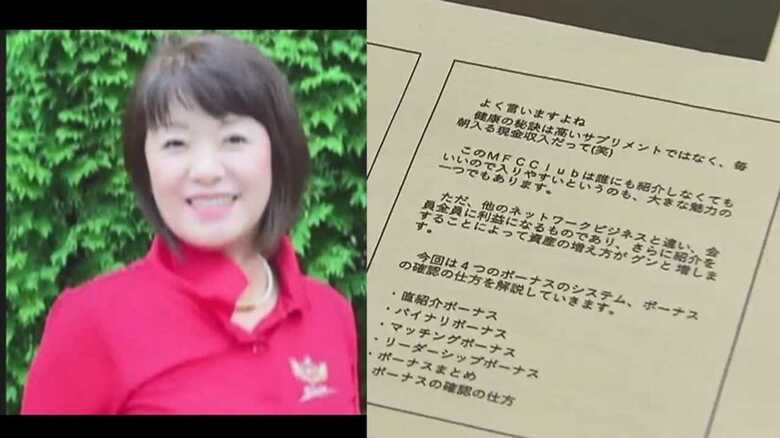 よく言いますよね
健康の秘訣は高いサプリメントではなく、毎
朝入る現金収入だって(笑)
このＭＦＣＣｌｕｂは誰にも紹介しなくても
いいので入りやすいというのも、大きな魅力の
一つでもあります。
ただ、他のネットワークビジネスと違い、会
員全員に利益になるものであり、さらに紹介を
することによって資産の増え方がグンと増しま
す。
今回は４つのボーナスのシステム、ボーナス
の確認の仕方を解説していきます。
・直紹介ボーナス
・バイナリボーナス
・マッチングボーナス
・リーダーシップボーナス
・ボーナスまとめ
ボーナスの確認の仕方